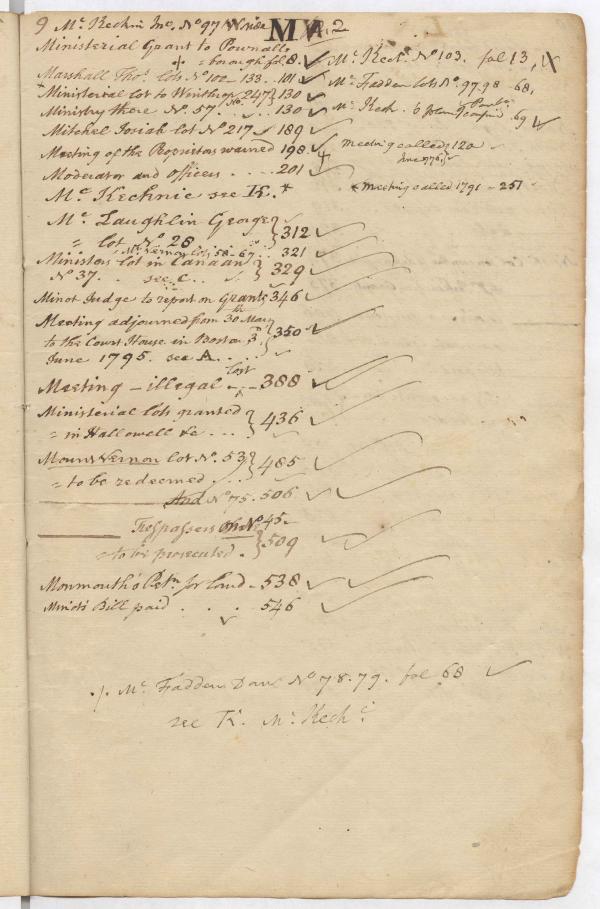 9 Mc. Kechin Jno. No 97 M 2
Ministerial Grant to Pownall-
= borough fol. 8. Mc. Kech. No 103. fol 13,
Marshall Thos. Lots No 102 - 133 - 101 Mc. Fadden Lots No. 97.98 - 68,
Ministerial lot to Winthrop 247 } 130
Ministry there No. 57. } 130 Mc. Kech. 69
Mitchel Josiah lot No 217 189
Meeting of the Proprietors warned 198. Meeting called 120
June 1776.
Moderator and officers . . . . 201
Mc. Kechnie see K. + + Meeting called 1791 - 251
Mc. Laughlin George }
= lot No 28 } 312
Mt. Vernon Lots 58-67 . . 321
Ministers lot in Canaan }
No 37. . . see C . . } 329
Minot Judge to report on Grants 346
Meeting adjourned from 30th May }
to the Court House in Boston 3. } 350
June 1795. see A . . . }
Meeting - illegal last - 388
Ministerial lots granted }
= in Hallowell &c . . . } 436
Mount Vernon lot No. 53 }
= to be redeemed . . . } 485
And No 75. 506
Trespassers on No 45 }
= to be prosecuted . } 509
Monmouth's Petn. for Land - 538
Minots Bill paid . . . - 546
./. Mc. Fadden Danl No 78.79. fol 68
see K. Mc. Kechc.